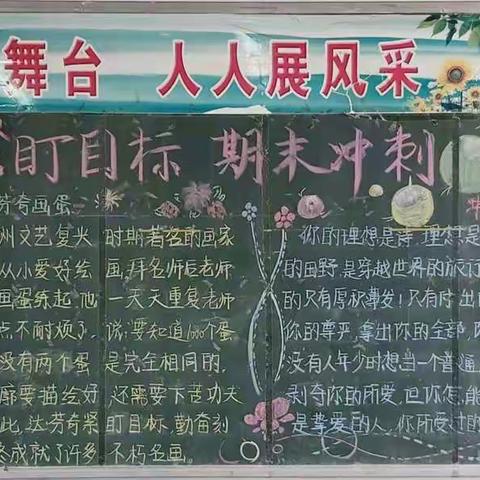 舞台 人人展风采
盯目标 期末冲刺
芬奇画蛋
州文艺复兴时期著名的画家
从小爱好绘画,拜名师后老师
画蛋练起,他一天天重复老师
点不耐烦了,说:要知道1000个蛋
没有两个蛋是完全相同的,
廓要描绘好还需要下苦功夫
此,达·芬奇紧盯目标,勤奋刻
终成就了许多不朽名画。
你的理想是诗,理想是
的田野,是穿越世界的旅行
的只有愿神奉发!只有时出
你的尊严,拿出你的全部,
没有人年少时想当一个普通
剥夺你的所爱,但你怎能
是挚爱的人,你所受过的